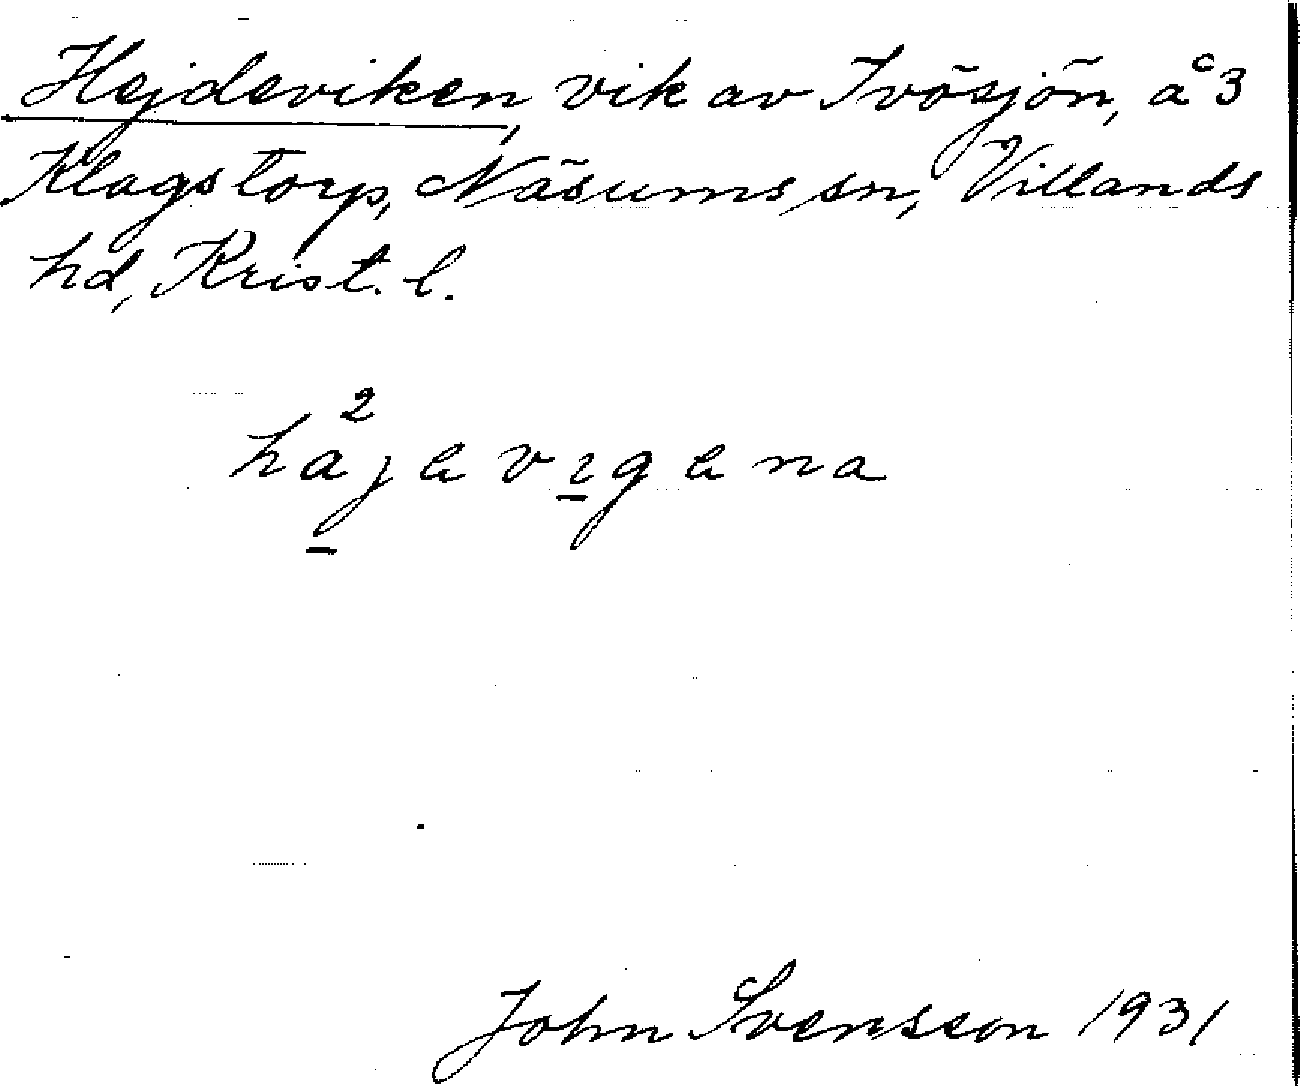 Hejdeviken, vik av Ivösjön, å 3
Klagstorp, Näsums sn, Villands
hd, Krist. l.
2
hajevigena
John Svensson 1931